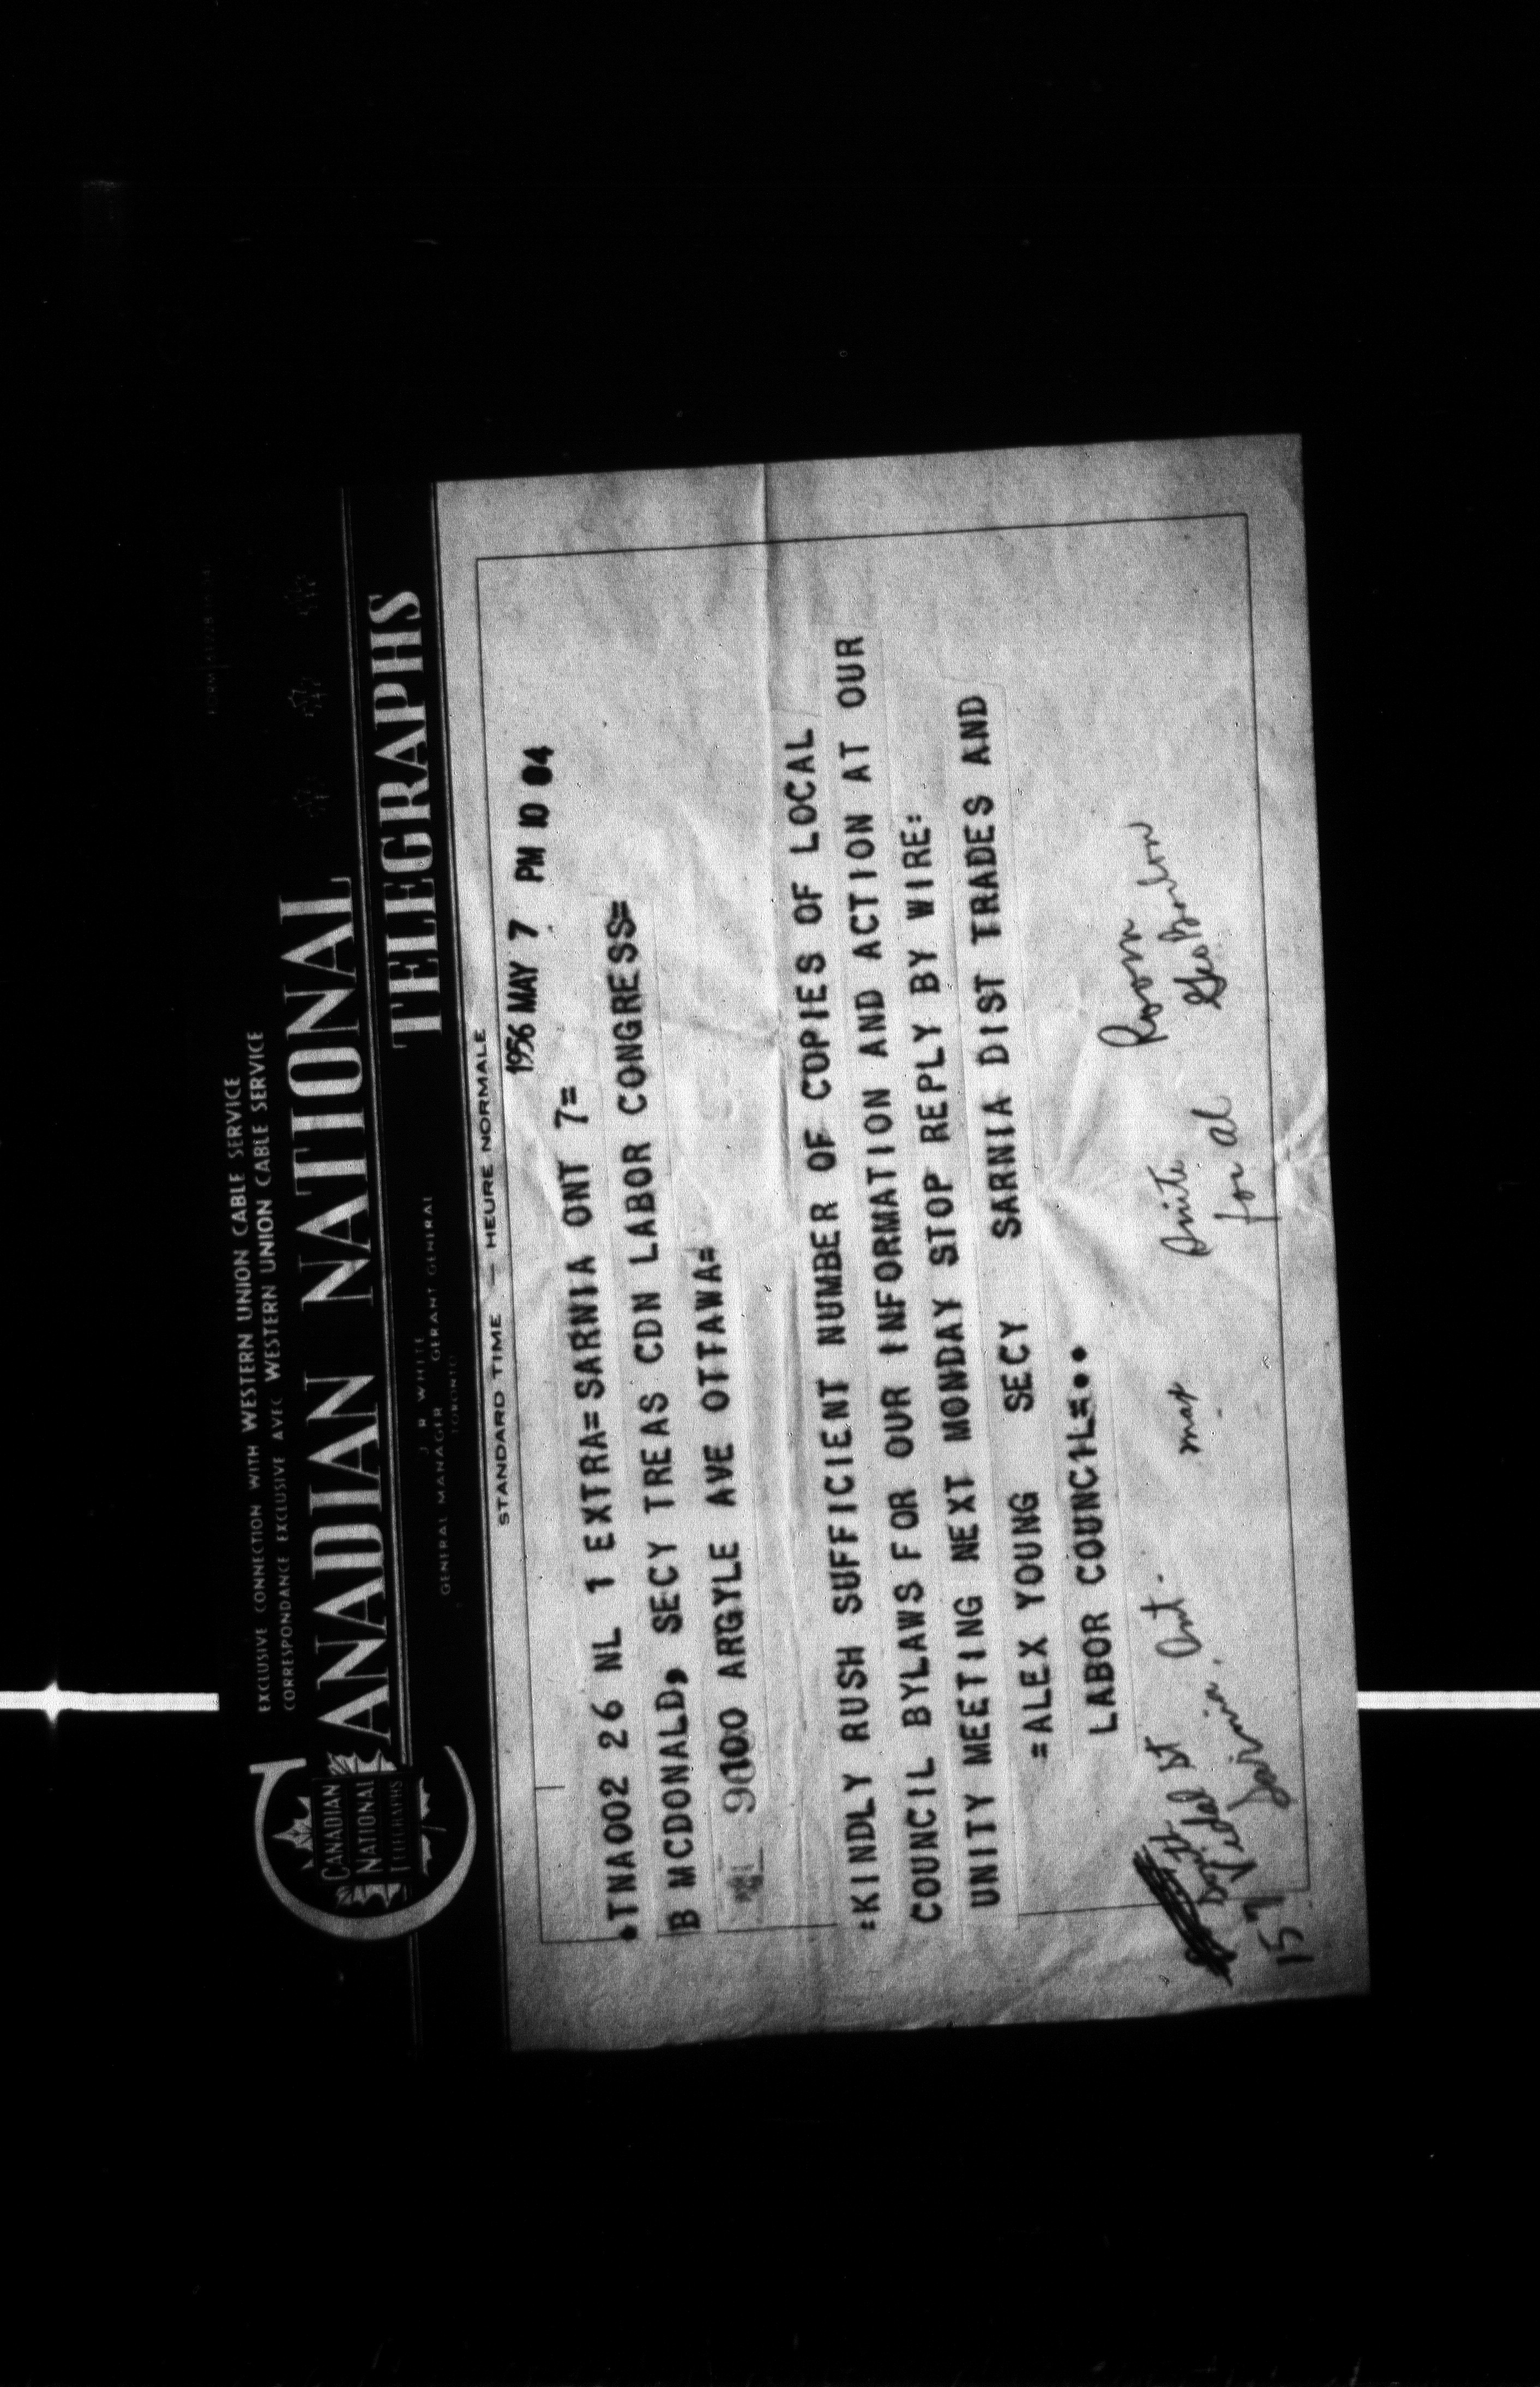 EXCLUSIVE CONNECTION WITH WESTERN UNION CABLE SERVICE
CORRESPONDANCE EXCLUSIVE AVEC WESTERN UNION CABLE SERVICE
CANADIAN NATIONAL
TELEGRAPHS
CANADIAN
NATIONAL
TELEGRAPHS
J. R. WHITE
GENERAL MANAGER GERANT GENERAL
TORONTO
STANDARD TIME — HEURE NORMALE
1956 MAY 7 PM 10 04
TNA002 26 NL 1 EXTRA=SARNIA ONT 7=
B MCDONALD, SECY TREAS CDN LABOR CONGRESS=
100 ARGYLE AVE OTTAWA=
=KINDLY RUSH SUFFICIENT NUMBER OF COPIES OF LOCAL
COUNCIL BYLAWS FOR OUR INFORMATION AND ACTION AT OUR
UNITY MEETING NEXT MONDAY STOP REPLY BY WIRE=
=ALEX YOUNG SECY SARNIA DIST TRADES AND
LABOR COUNCIL=..
157 Vidal St
Sarnia, Ont.
max
for al
Room